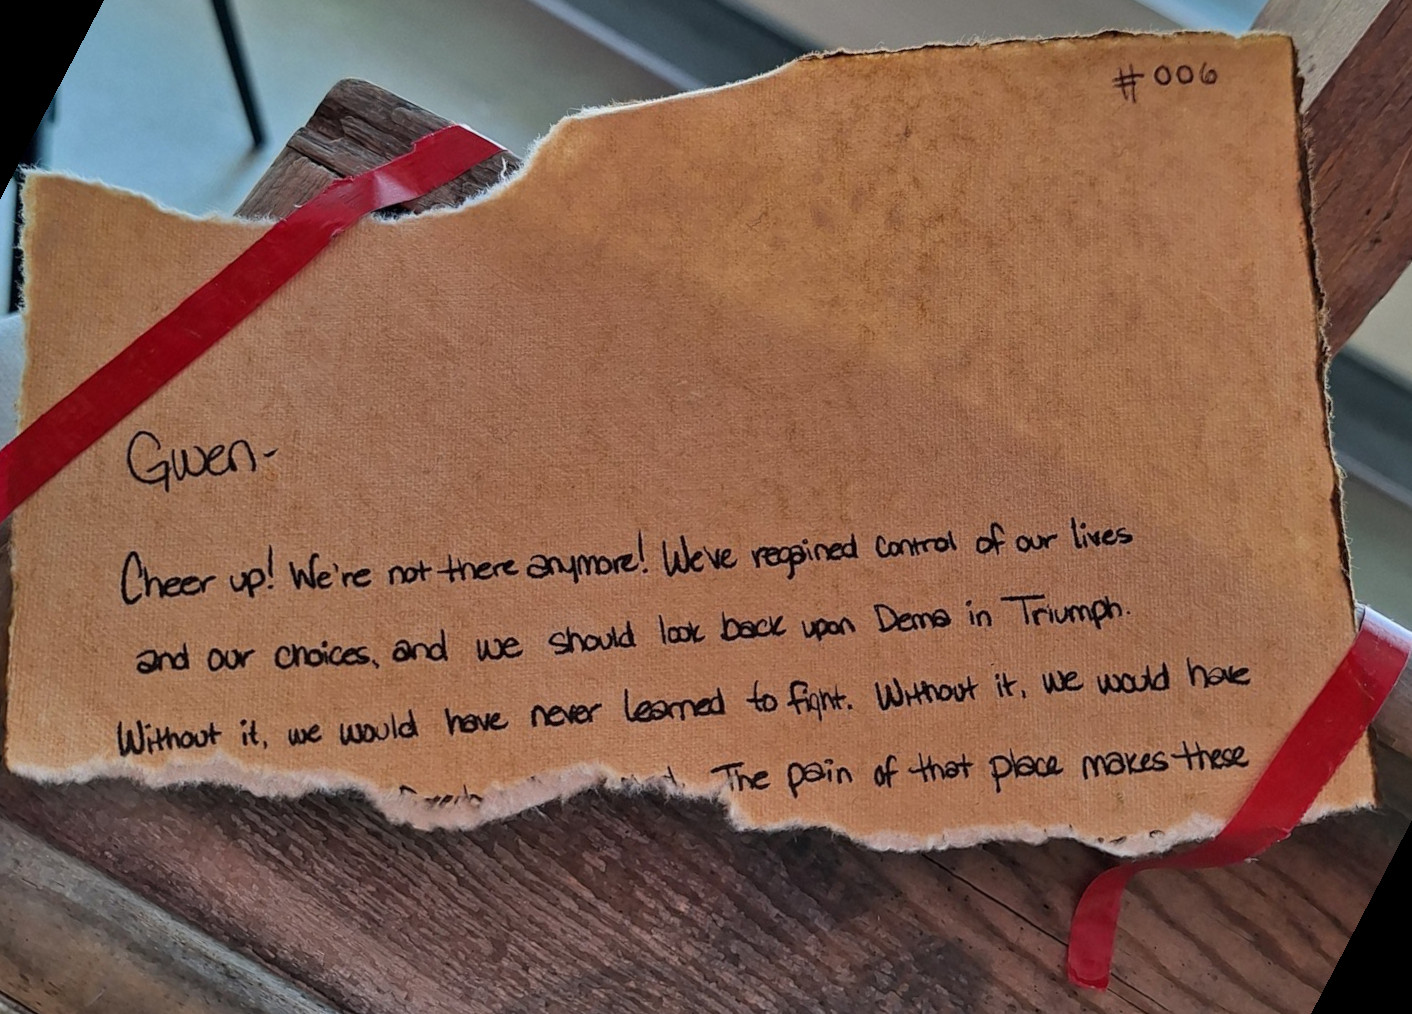 #006
Gwen-
Cheer up! We're not there anymore! We've regained control of our lives
and our choices, and we should look back upon Dema in Triumph.
Without it, we would have never learned to fight. Without it, we would have
The pain of that place makes these